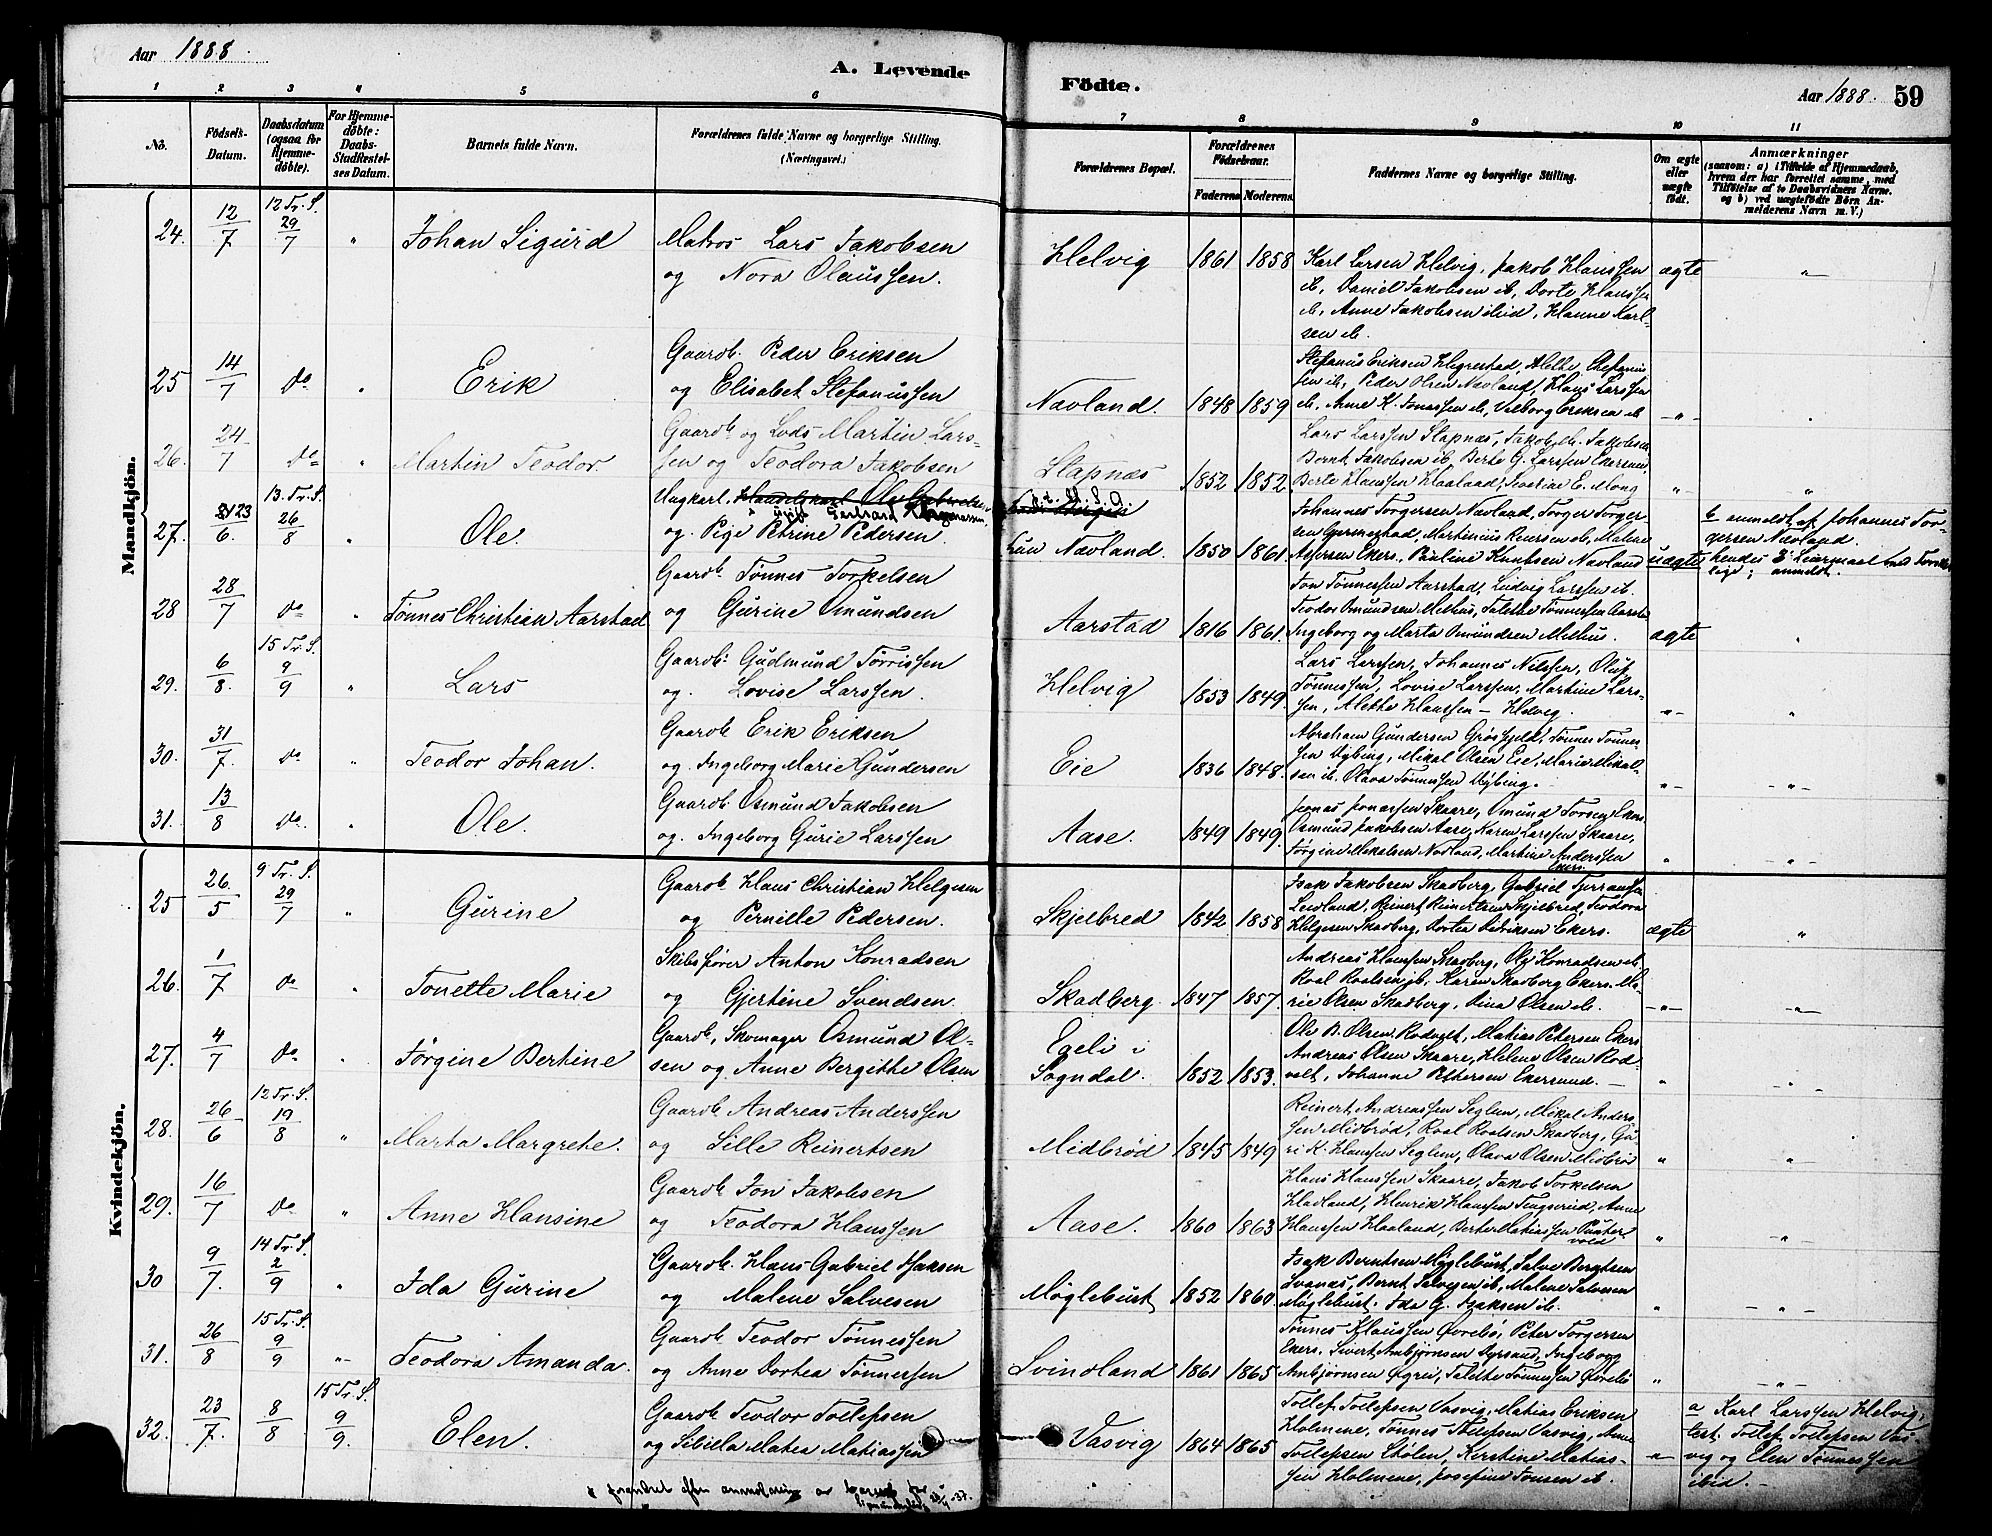 Aar 1888
A. Levende
Födte.
Aar 1888. 59
1 2 3 4 5 6 7 8 9 10 11
No.
Fødsels-Datum.
Daabsdatum (ogsaa for Hjemmedøbte).
For Hjemmedøbte: Daabs-Stadfæstelses Datum.
Barnets fulde Navn.
Forældrenes fulde Navne og borgerlige Stilling. (Næringsvei.)
Forældrenes Bopæl.
Forældrenes Fødselsaar.
Faderens. Moderens.
Faddernes Navne og borgerlige Stilling.
Om ægte eller uægte født.
Anmærkninger (saasom: a) i Tilfælde af Hjemmedaab, hvem der har forrettet samme, med Tilføielse af to Daabsvidners Navne. og b) ved uægtefødte Börn Anmelderens Navn m. V.)
Mandkjön.
24. 12/7 12 Tr. S. 29/7 " Johan Sigurd Matros Lars Jakobsen
og Nora Olaussen. Helvig 1861 1858 Karl Larsen Helvig, Jakob Hanssen
ib, Daniel Jakobsen ib, Dorte Hanssen
ib, Anne Jakobsen ibid, Hanne Karl-
sen ib. ægte "
25 14/7 do " Erik Gaardb. Peder Eriksen
og Elisabet Stefanussen Navland. 1848 1859 Stefanus Eriksen Hegrestad, Alette Stefanus-
sen ib, Peder Olsen Navland, Hans Larssen
ib, Anne K. Jonassen ib, Valborg Eriksen ib -"- "
26. 24/7 do " Martin Teodor Gaardb. og Lods Martin Lars-
sen og Teodora Jakobsen Stapnæs 1852 1852 Lars Larssen Stapnæs, Jakob M. Jakobsen
Bernt Jakobsen ib, Berte G. Larssen Ekersund,
Berte Hanssen Haaland, Severine E. Mong "- "
27. 23/6. 13. Tr. S. 26/8 " Ole Ungkarl, Handelskarl Ole Gabrielsen
og. Pige Petrine Pedersen. hun Navland. 1850 1861. Johannes Torgersen Navland, Torger Torger-
sen Germestad, Martinius Reiersen ib, Malene
Asersen Ekers., Pauline Knutsen Navland uægte b anmeldt af Johannes Tor-
gersen Navland.
hendes 2 Leiermaal
anmeldt.
28 28/7 do " Tönnes Christian Aarstad Gaardb. Tönnes Torkelsen
og Gurine Omundsen Aarstad 1816 1861. Jon Tönnessen Aarstad, Ludvig Larssen ib.
Teodor Omundsen Melhus, Talette Tönnessen Aarstad
Ingeborg og Marta Omundsen Melhus. ægte "
29. 6/8. 15 Tr. S. 9/9 " Lars Gaardb. Gudmund Tørrissen
og. Lovise Larssen. Helvig 1853 1849. Lars Larssen, Johannes Nilssen, Oluf
Tönnessen, Lovise Larssen, Martine Lars-
sen, Alette Hanssen - Helvig. -"- "
30. 31/7. do " Teodor Johan. Gaardb Erik Eriksen
og. Ingeborg Marie Gundersen Eie 1836 1848. Abraham Gundersen Grøsfjeld, Tönnes Tönnes-
sen Nybing, Mikal Olsen Eie, Marie Mikal-
sen ib. Olava Tönnessen Nybing. -"- -"-
31. 13/8 do. " Ole. Gaardb. Osmund Jakobsen
og. Ingeborg Gurie Larssen Aase. 1849 1849. Jonas Jonassen Skaare, Omund Torsen Ekers.
Osmund Jakobsen Aase, Karen Larssen Skaare,
Jørgine Mikalsen Navland, Martine Anderssen
Ekers. " -"-
Kvindekjön.
25 26/5 9 Tr. S. 29/7 " Gurine Gaardb. Hans Christian Helgesen
og Pernille Pedersen. Skjelbred 1842 1858 Isak Jakobsen Skadberg, Gabriel
Leidland, Reinert Reinertsen Skjelbred, Teodora
Helgesen Skadberg, Dortea Didriksen Ekers. ægte "
26. 1/7 do " Tonette Marie Skibsfører Anton Konradsen
og Gjertine Svendsen. Skadberg. 1847 1857. Andreas Hansen Skadberg, Ole Konradsen ib
Roal Roalsen ib, Karen Skadberg Ekers. Ma-
rie Olsen Skadberg, Dina Olsen ib. -"- -"-
27. 4/7 do " Jørgine Bertine Gaardb, Skomager Osmund Ol-
sen og Anne Bergitte Olsen Egeli i
Sogndal. 1852 1853. Ole B. Olsen Rodvelt, Matias Petersen Ekers
Andreas Olsen Skaare, Helene Olsen Rod-
velt, Johanne Pettersen Ekersund. - " -"-
28. 26/6 12 Tr. S. 19/8 " Marta Margrete. Gaardb Andreas Anderssen
og Sille Reinertsen Midbrød 1845 1849 Reinert Andreassen Seglem, Mikal Anders-
sen Midbrød, Roal Roalsen Skadberg, Gu-
ri K. Hanssen Seglem, Olava Olsen Midbrød " "
29. 16/7 do " Anne Hansine Gaardb Jon Jakobsen
og Teodora Hanssen Aase. 1860 1863 Hans Hanssen Skaare, Jakob Torkelsen
Hadland, Henrik Hanssen Tengsereid, Anne
Hanssen Haaland, Berte Matiassen Punter-
vold " -"-
30 9/7. 14 Tr. S. 2/9 " Ida Gurine Gaardb. Hans Gabriel Isaksen
og Malene Salvesen Møglebust 1852 1860 Isak Berntsen Møglebust, Salve Bergtsen
Svanæs, Bernt Salvesen ib, Malene Salvesen
Møglebust. Ida G. Isaksen ib. " -"-
31. 26/8 15 Tr. S. 9/9 "- Teodora Amanda. Gaardb Teodor Tönnessen
og Anne Dortea Tönnessen Svindland 1861 1865 Tönnes Klaussen Øvrebø, Peter Torgersen
Ekers. Sivert Ambjørnsen, Ingeborg
Ambjørnsen, Talette Tönnessen Øvrebø " -"-
32. 23/7. 8/8 15 Tr. S. 9/9. Elen. Gaardb Teodor Tollefsen
og Sibilla Matea Matiassen Vasvig 1864 1865 Tollef Tollefsen Vasvig, Matias Eriksen
Holmene, Tönnes Tollefsen Vasvig, Anne
Tollefsen Stölen, Kirstine Matias-
sen Holmene, Josefine Tonsen ib. -"- a Karl Larssen Helvig,
test. Tollef Tollefsen Vas-
vig og Elen Tönnessen
ibid. -